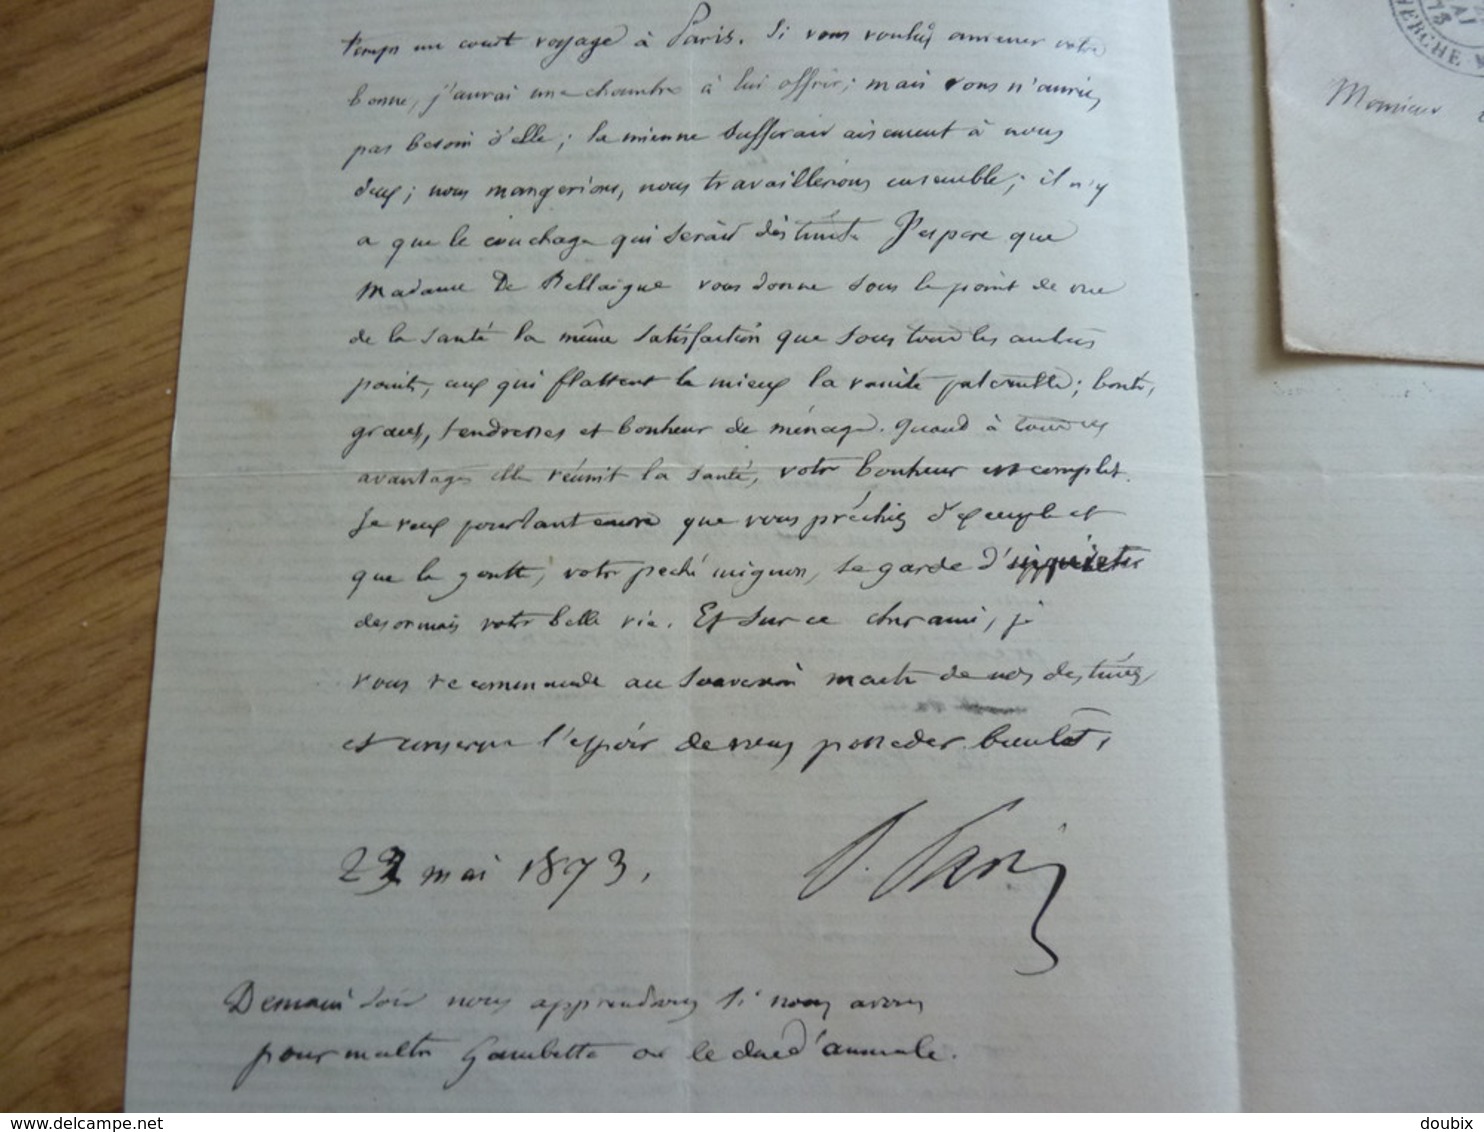 temps un court voyage à Paris. Si vous vouliez amener votre
bonne, j'aurai une chambre à lui offrir; mais vous n'auriez
pas besoin d'elle; la mienne suffirait aisement à nous
deux; nous mangerions, nous travaillerions ensemble; il n'y
a que le couchage qui serait distinct. J'espere que
Madame De Bellaigue vous donne sous le point de vue
de la santé la même satisfaction que sous tous les autres
points, ceux qui flattent le mieux la vanité paternelle; bonté,
graces, tendresses et bonheur de ménage. Quand à tous ces
avantages elle réunit la santé, votre bonheur est complet.
Je veux pourtant encore que vous préchiez d'exemple et
que la goutte, votre peché mignon, se garde d'inquieter
desormais votre belle vie. Et sur ce cher ami, je
vous recommande au souverain maitre de nos destinées,
et conserve l'espoir de vous posseder bientôt,
23 mai 1873.
P. Paris
Demain soir nous apprendrons si nous avons
pour maitre Gambetta ou le duc d'aumale.
Monsieur
HERCHE
75
delcampe.net
doubix